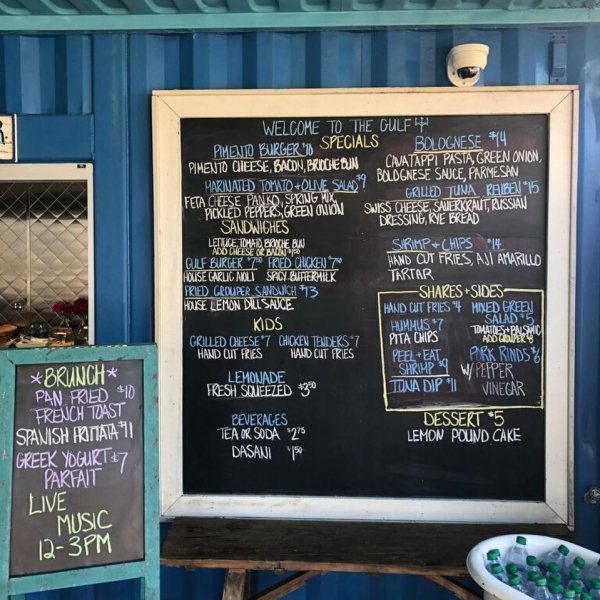 WELCOME TO THE GULF
SPECIALS
PIMENTO BURGER $10
PIMENTO CHEESE, BACON, BRIOCHE BUN
MARINATED TOMATO + OLIVE SALAD $9
FETA CHEESE PANKO, SPRING MIX,
PICKLED PEPPERS, GREEN ONION
SANDWICHES
LETTUCE, TOMATO, BRIOCHE BUN
ADD CHEESE OR BACON $1.50
GULF BURGER $7.50 FRIED CHICKEN $7.50
HOUSE GARLIC AIOLI SPICY BUTTERMILK
FRIED GROUPER SANDWICH $13
HOUSE LEMON DILL SAUCE
KIDS
GRILLED CHEESE $7 CHICKEN TENDERS $7
HAND CUT FRIES HAND CUT FRIES
LEMONADE
FRESH SQUEEZED $3.50
BEVERAGES
TEA OR SODA $2.75
DASANI $1.50
BOLOGNESE $14
CAVATAPPI PASTA, GREEN ONION,
BOLOGNESE SAUCE, PARMESAN
GRILLED TUNA REUBEN $15
SWISS CHEESE, SAUERKRAUT, RUSSIAN
DRESSING, RYE BREAD
SHRIMP + CHIPS $14
HAND CUT FRIES, AJI AMARILLO
TARTAR
SHARES + SIDES
HAND CUT FRIES $4
HUMMUS $7
PITA CHIPS
PEEL + EAT
SHRIMP $9
TUNA DIP $11
MIXED GREEN
SALAD $5
TOMATOES + BALSAMIC
ADD GROUPER
PORK RINDS
W/ PEPPER
VINEGAR
DESSERT $5
LEMON POUND CAKE
*BRUNCH*
PAN FRIED $10
FRENCH TOAST
SPANISH FRITTATA $11
GREEK YOGURT $7
PARFAIT
LIVE
MUSIC
12-3PM